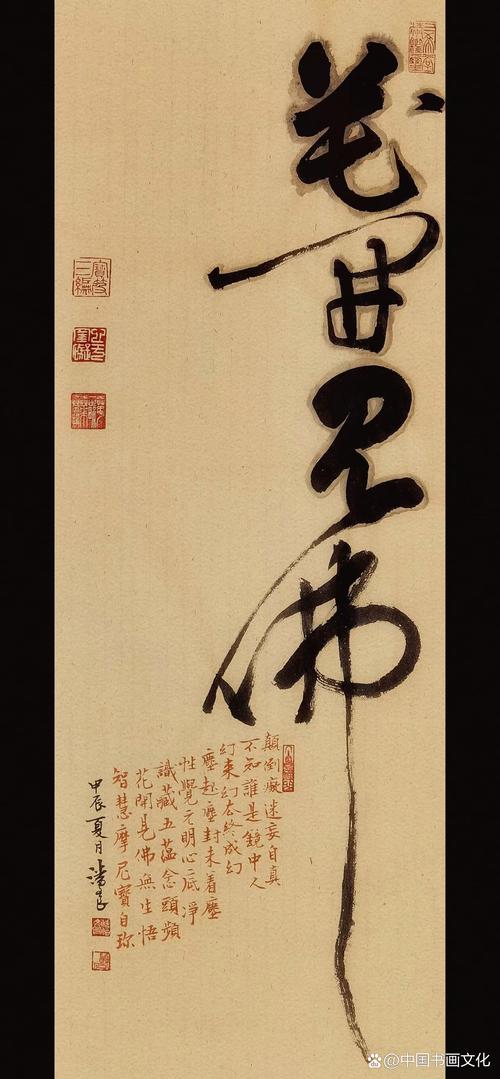 三希堂精鑑璽
花開見佛
寶笈三編
顛倒癡迷妄自真
不知誰是鏡中人
幻來幻去終成幻
塵起塵封未着塵
性覺元明心底淨
識藏五蘊念頭頻
花開見佛無生悟
智慧摩尼寶自珎
甲辰夏月
@中国书画文化